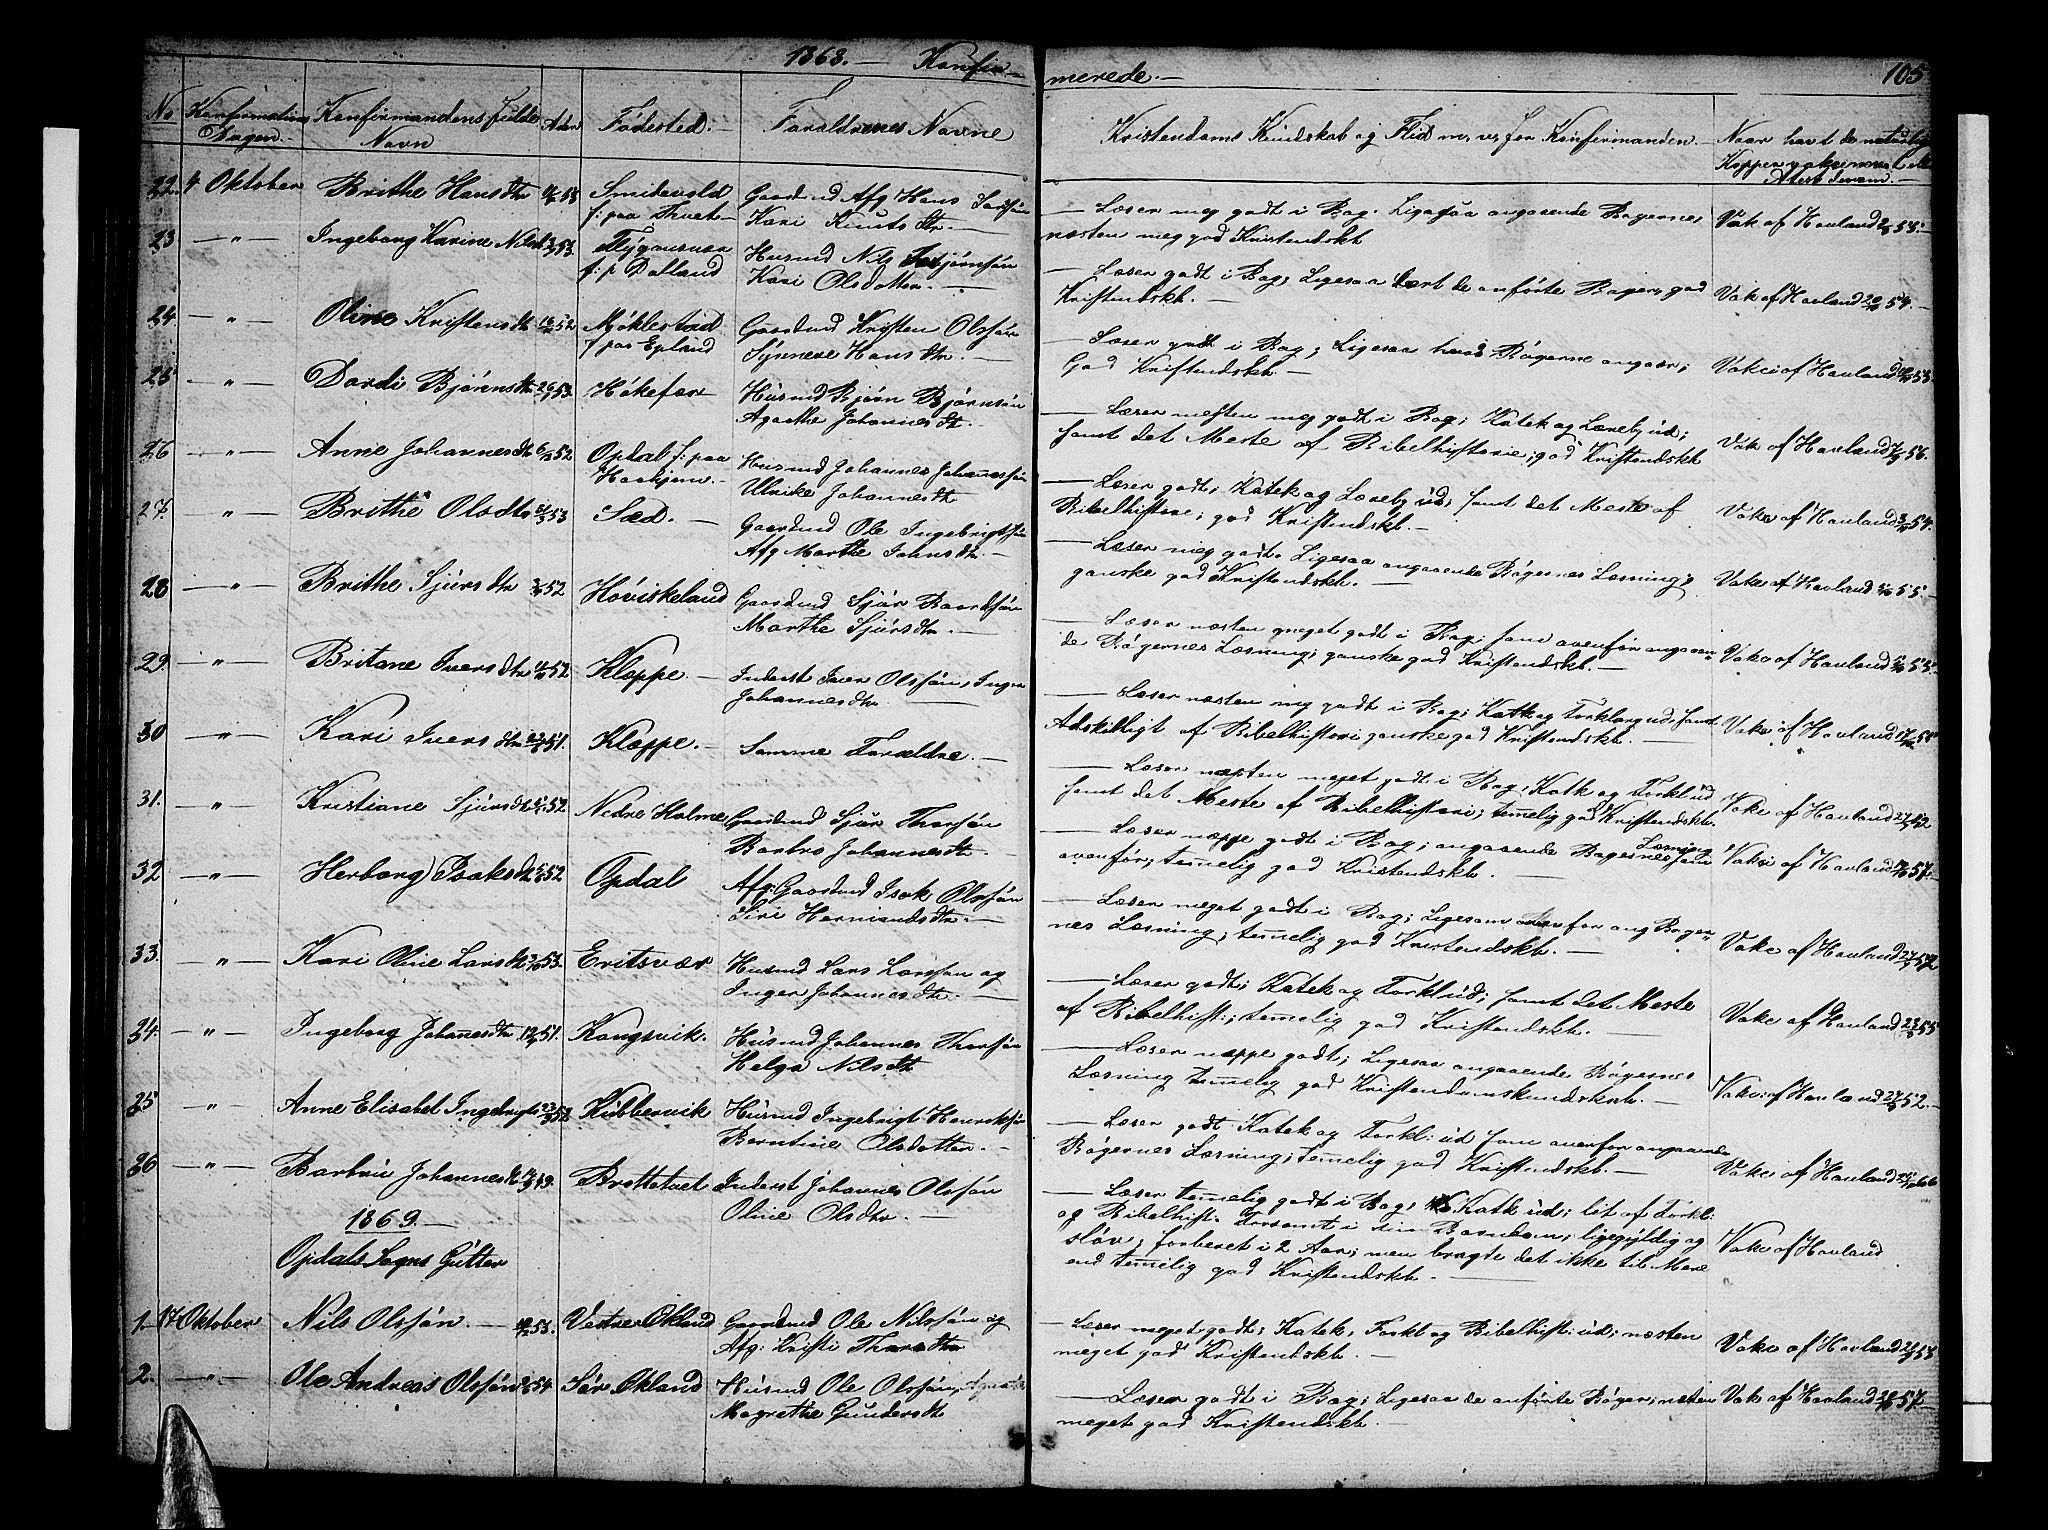 1868. — Konfir-
merede. —
105
No
Konfirmations
Dagen.
Konfirmandens fulde
Navn
Födested. —
Forældrenes Navne
Kristendoms Kundskab og Flid m. v. for Konfirmanden. —
Naar havt de naturlige
Kopper
22. 4 Oktober Brithe Hansdtr Smidevold Gaardmd Afg Hans
f: paa Tveit Kari Knutsdtr —
— Læser meg godt i Bog. Ligesaa angaaende Bøgernes,
næsten meg god Kristendskb
Vak af Havland 55. —
23 — " — Ingeborg Karine Nilsd 53. Flygansvær Husmd Nils
f: p Dalland Kari Olsdatter. —
— Læser godt i Bog, Ligesaa lært de anførte Bøger, god
Kristendskb. —
Vak af Havland 54. —
24. — " — Oline Kristensdtr 52 Møklestad Gaardmd Kristen Olssøn
f paa Epland Synneve Hansdtr. —
— Læser godt i Bog; Ligesaa hvad Bøgerne angaar;
God Kristendskb. —
Vakc: af Havland 55.
25 — " — Dordi Bjørnsdtr 53. Høkefær Husmd Bjørn Bjørnsøn
Agathe Johannesdtr. —
— Læser næsten meg godt i Bog; Katek og Læreb ud;
samt det Meste af Bibelhistorie; god Kristendskb
Vak af Havland 56.
26 — " — Anne Johannesdtr 52 Opdal f: paa Husmd Johannes Johannessøn
Ulrike Johannesdtr
— Læser godt; Katek og Læreb ud; samt det Meste af
Bibelhistorie; god Kristendskb. —
Vakc af Havland 54.
27. — " — Brithe Olsdtr 53 Sæd. — Gaardmd Ole Ingebrigtsøn
Afg Marthe Johnsdtr. —
— Læser meg godt. Ligesaa angaaende Bøgernes Læsning;
ganske god Kristendskb. —
Vakc af Havland 55. —
28 — " — Brithe Sjursdtr 52 Høviskeland Gaardmd Sjur Baardsøn
Marthe Sjursdtr. —
— Læser næsten meget godt i Bog; som ovenfor angaaen
de Bøgernes Læsning; ganske god Kristendskb. —
Vakc af Havland 55. —
29. — " — Britane Iversdtr 52 Kloppe. — Inderst Iver Olssøn, Inger
Johannesdtr. —
— Læser næsten meg godt i Bog; Katk og Forklarg ud, samt
Adskilligt af Bibelhistori ganske god Kristendskb. —
Vakc af Havland
30 — " — Kari Iversdtr 51. Kloppe. — Samme Forældre. —
— Læser næsten meget godt i Bog, Katk og Forkl ud
samt det Meste af Bibelhistori; temelig god Kristendskb.
Vakc af Havland
31. — " — Kristiane Sjursdtr 52 Nedre Holme Gaardmd Sjur Thorsøn
Barbro Johannesdtr. —
— Læser næppe godt i Bog; angaaende Bøgernes Læsning som
ovenfor; temelig god Kristendskb. —
Vakc: af Havland 57. —
32 — " — Herborg Isaksd 52 Opdal Afg: Gaardmd Isak Olssøn
Siri Hermundsdtr. —
— Læser meget godt i Bog; Ligesom ovenfor ang Bøger
nes Læsning; temelig god Kristendskb. —
Vakc af Havland
33. — " — Kari Oline Larsd 53. Eritsvær Husmd Lars Larssøn og
Inger Johannesdtr. —
— Læser godt; Katek og Forkl ud; samt det Meste
af Bibelhist:; temelig god Kristendskb. —
Vakc af Havland 55
34. — " — Ingeborg Johanesdtr 51. Kongsvik. Husmd Johannes Thorsøn
Helga Nilsdtr
— Læser næppe godt; Ligesaa angaaende Bøgernes
Læsning temelig god Kristendomskundskab. —
Vakc: af Havland 52. —
35 — " — Anne Elisabet Ingebrigts 52 Kubbervik Husmd Ingebrigt Henriksøn
Berntine Olsdatter. —
— Læser godt Katek og Forkl: ud som ovenfor angaaende
Bøgernes Læsning; temelig god Kristendskb. —
Vakc af Havland 66
36 — " — Barbru Johannesd 49. Brottetveit Inderst Johannes Olssøn
Oline Olsdtr. —
— Læser temelig godt i Bog, Katk ud; lit af Forkl:
og Bibelhist: Forsømt i sin Barndom; ligegyldig og
sløv; forberet i 2 Aar; men bragte det ikke til Mere
end temelig god Kristendskb. —
Vakc af Havland
1869. —
Opdals Sogns Gutter
1. 17 Oktober Nils Olssøn. — 53. Vestre Økland Gaardmd Ole Nilssøn og
Afg: Kristi Thorsdtr
— Læser meget godt; Katek, Forkl og Bibelhist: ud; næsten
meget god Kristendskb. —
Vakc af Havland
2. — " — Ole Andreas Olssøn 54 Sør Økland Husmd Ole Olssøn,
Magrethe Gundersdtr
— Læser godt i Bog; Ligesaa de anførte Bøger; næsten
meget god Kristendskb. —
Vak af Havland 57. —